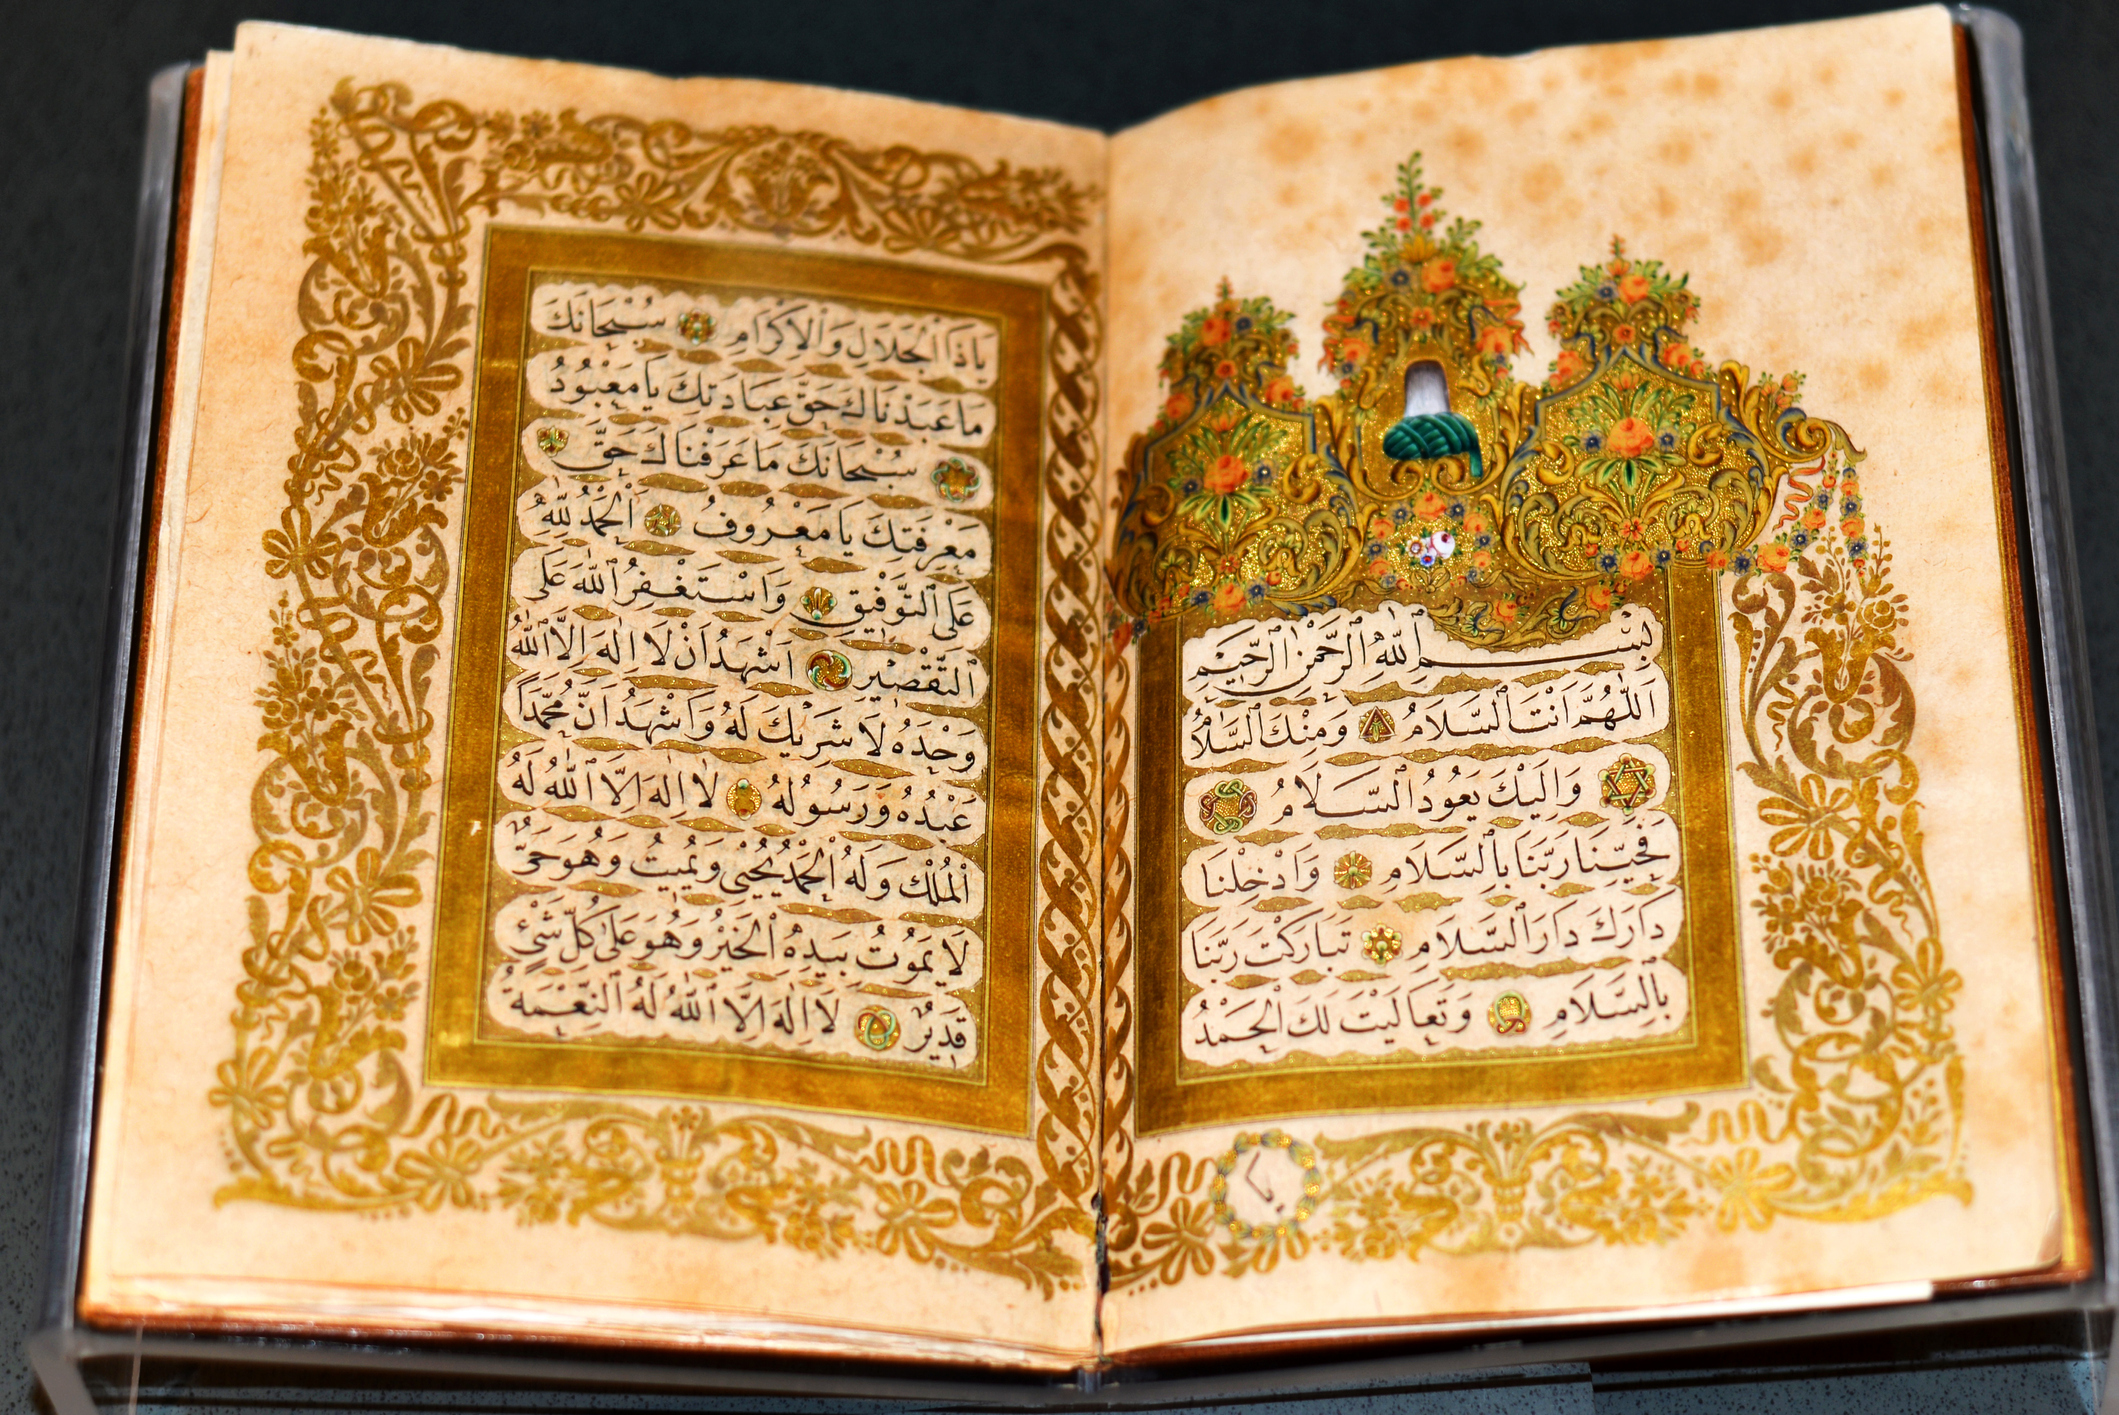 بِسْمِ اللّٰهِ الرَّحْمٰنِ الرَّحِيمِ
اَللّٰهُمَّ اَنْتَ السَّلَامُ وَمِنْكَ السَّلَامُ
وَاِلَيْكَ يَعُودُ السَّلَامُ
فَحَيِّنَا رَبَّنَا بِالسَّلَامِ وَاَدْخِلْنَا
دَارَكَ دَارَ السَّلَامِ تَبَارَكْتَ رَبَّنَا
بِالسَّلَامِ وَتَعَالَيْتَ لَكَ الْحَمْدُ
يا
يَاذَا الْجَلَالِ وَالْاِكْرَامِ سُبْحَانَكَ
مَا عَبَدْنَاكَ حَقَّ عِبَادَتِكَ يَا مَعْبُودُ
سُبْحَانَكَ مَا عَرَفْنَاكَ حَقَّ
مَعْرِفَتِكَ يَا مَعْرُوفُ اَلْحَمْدُ لِلّٰهِ
عَلَى التَّوْفِيقِ وَاَسْتَغْفِرُ اللّٰهَ عَلَى
التَّقْصِيرِ اَشْهَدُ اَنْ لَا اِلٰهَ اِلَّا اللّٰهُ
وَحْدَهُ لَا شَرِيكَ لَهُ وَاَشْهَدُ اَنَّ مُحَمَّدًا
عَبْدُهُ وَرَسُولُهُ لَا اِلٰهَ اِلَّا اللّٰهُ لَهُ
الْمُلْكُ وَلَهُ الْحَمْدُ يُحْيِي وَيُمِيتُ وَهُوَ حَيٌّ
لَا يَمُوتُ بِيَدِهِ الْخَيْرُ وَهُوَ عَلٰى كُلِّ شَيْئٍ
قَدِيرٌ لَا اِلٰهَ اِلَّا اللّٰهُ لَهُ النِّعْمَةُ